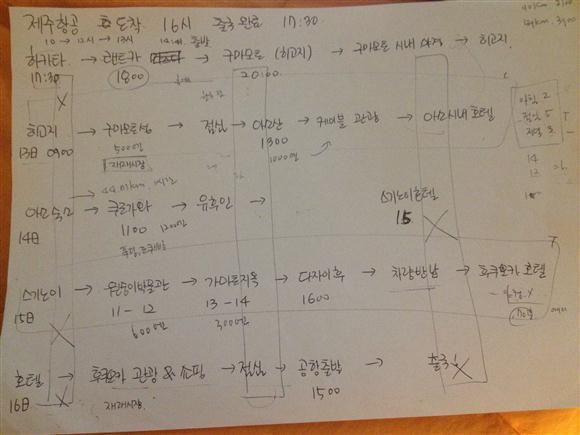 제주항공 도착 16시 출국 완료 17:30
10 → 12시 → 13시
하카타 → 렌트카 → 구마모토 (히고지) → 구마모토 시내 야경 → 히고지
17:30 1800 20:00
히고지 → 구마모토성 → 점심 → 아소산 → 케이블 관광 → 아소시내 호텔
13日 0900 500엔 1300
재래시장 1000엔
아침 2
점심 5
저녁
14
13
아소숙소 → 쿠로가와 → 유후인 → 스기노이호텔
14日 1100 1200엔 15
스기노이 → 원숭이박물관 → 가마도지옥 → 다자이후 → 차량반납 → 후쿠오카 호텔
15日 11 - 12 13 - 14 1600
600엔 3000엔
호텔 → 후쿠오카 관광 & 쇼핑 → 점심 → 공항출발 → 출국
16日 재래시장 1500